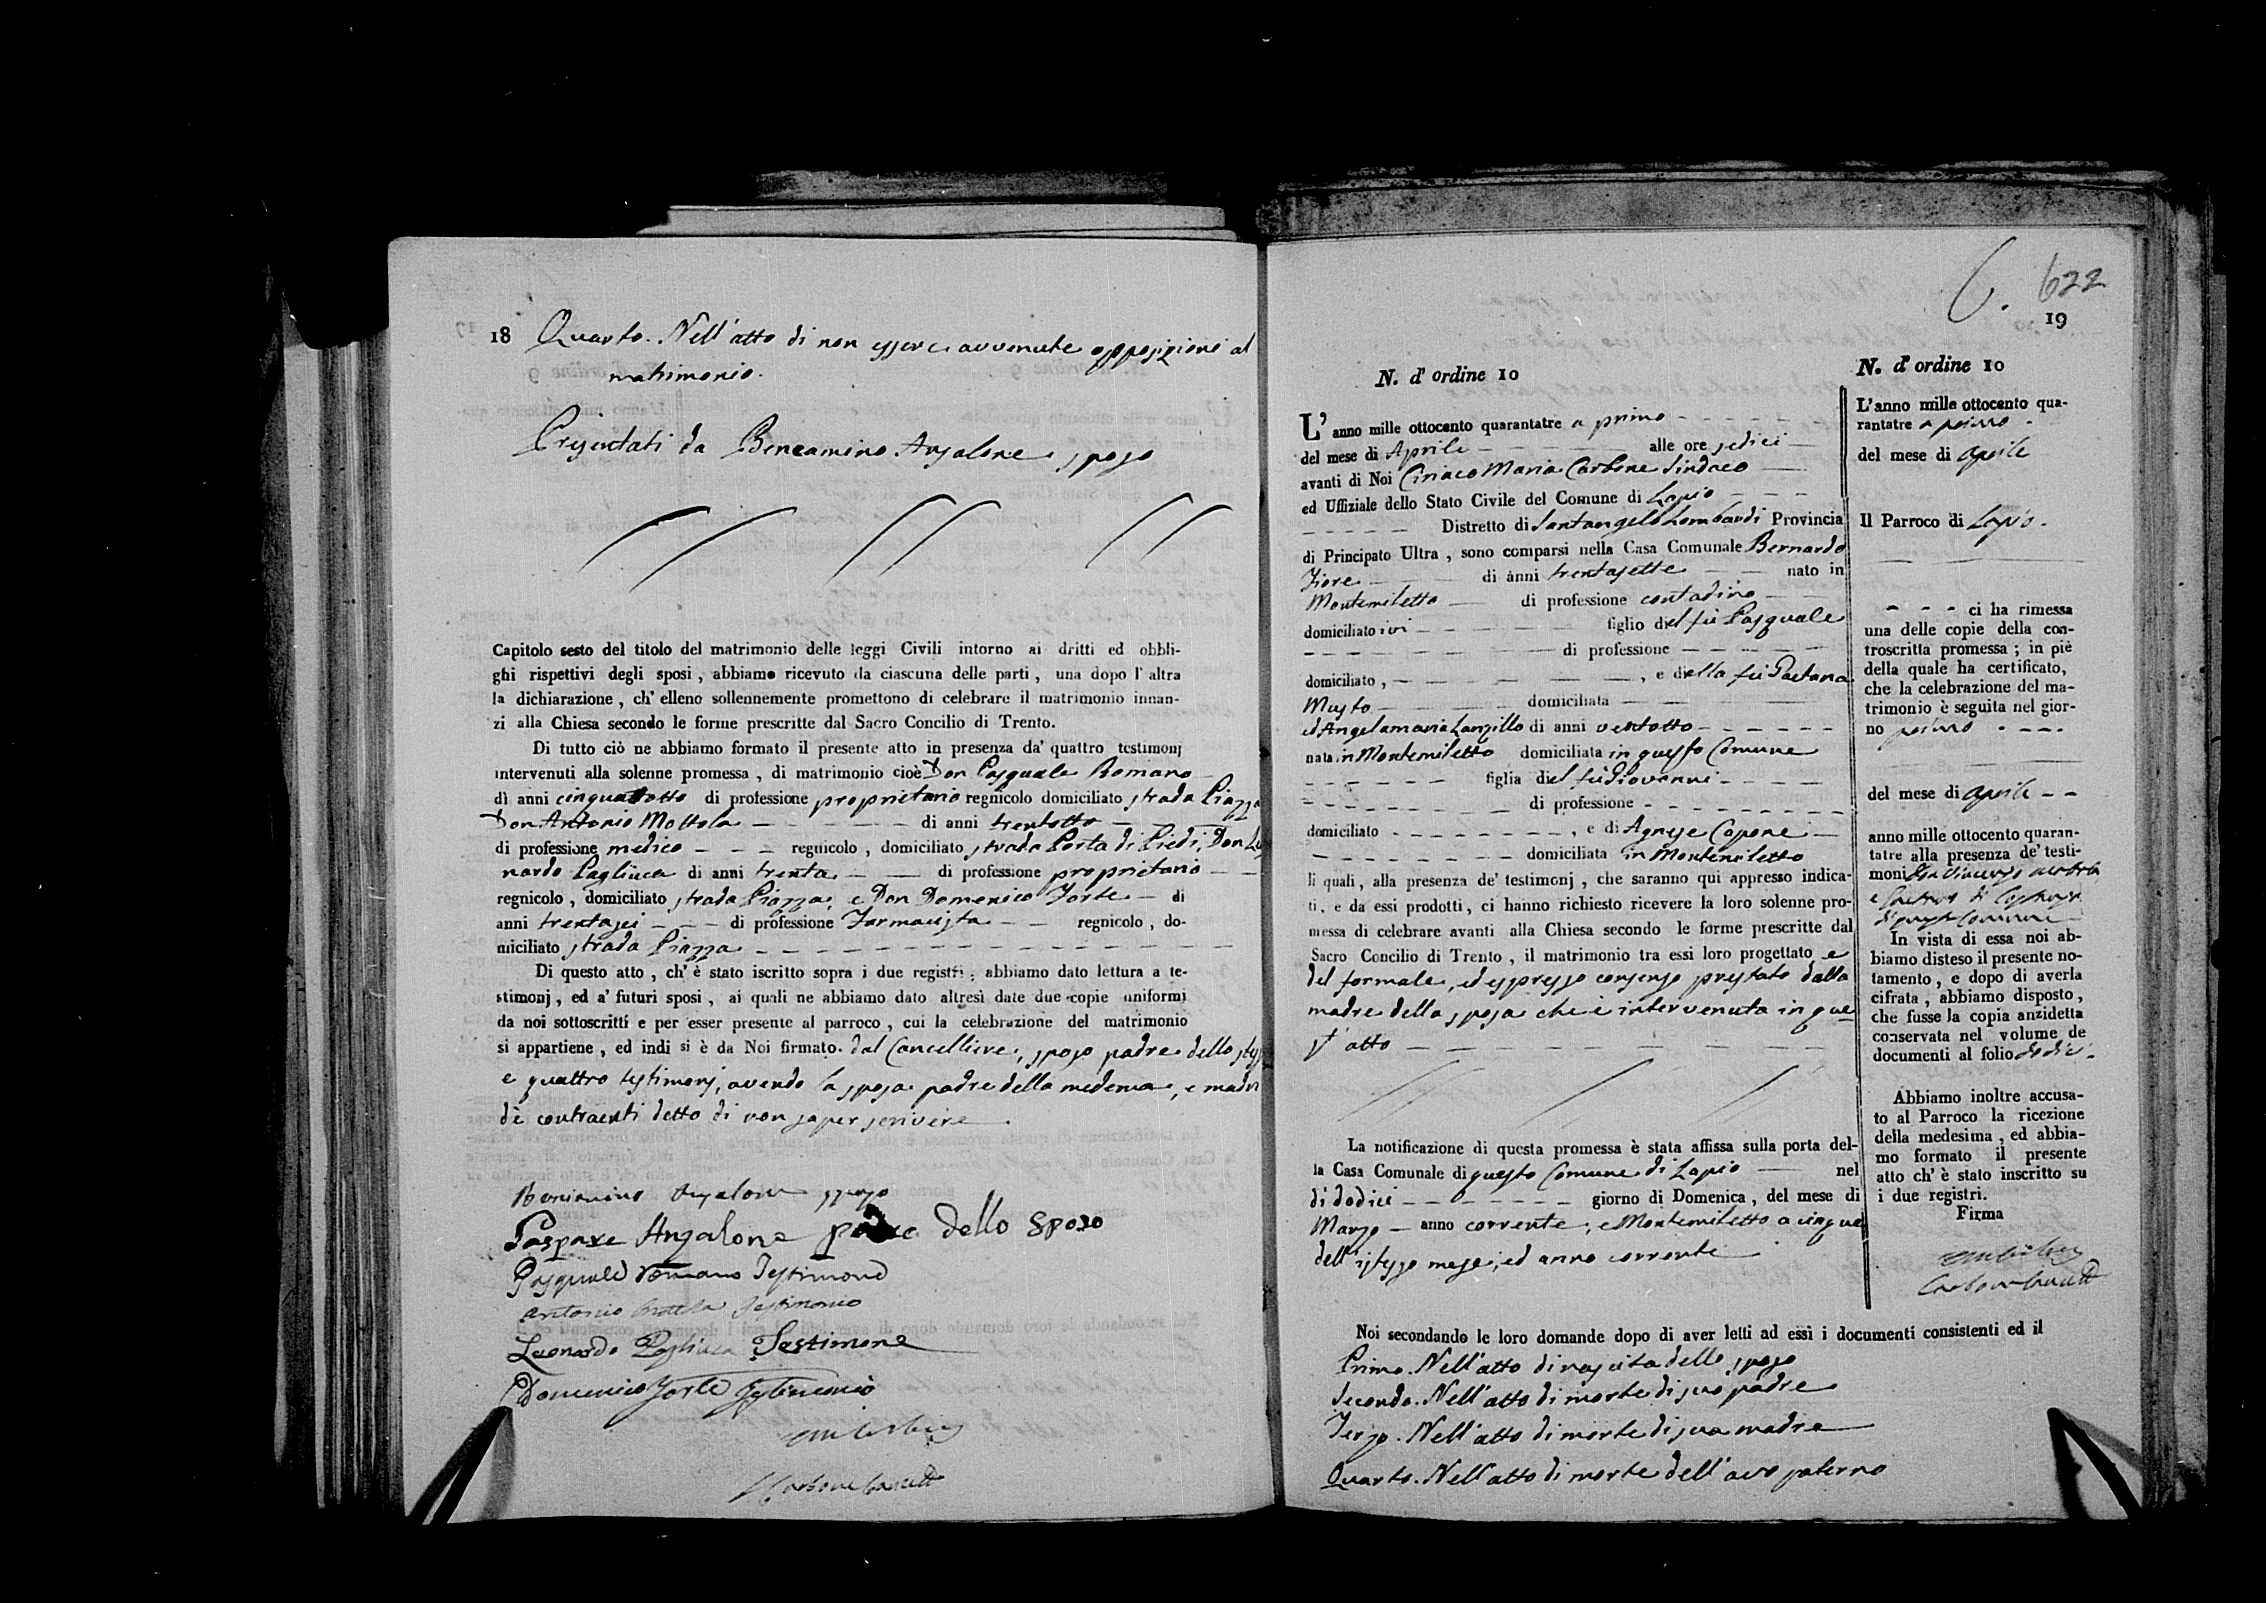 18 Quarto. Nell'atto di non esserci avvenute opposizioni al
matrimonio.
Presentati da Beneamino Anzalone sposo
Capitolo sesto del titolo del matrimonio delle leggi Civili intorno ai dritti ed obbli-
ghi rispettivi degli sposi, abbiamo ricevuto da ciascuna delle parti, una dopo l'altra
la dichiarazione, ch'elleno sollennemente promettono di celebrare il matrimonio innan-
zi alla Chiesa secondo le forme prescritte dal Sacro Concilio di Trento.
Di tutto ciò ne abbiamo formato il presente atto in presenza da' quattro testimonj
intervenuti alla solenne promessa, di matrimonio cioè Don Pasquale Romano
di anni cinquattotto di professione proprietario regnicolo domiciliato strada Piazza
Don Antonio Mottola di anni trentotto
di professione medico regnicolo, domiciliato strada Porta di Piedi, Don Leo
nardo Pagliuca di anni trenta di professione proprietario
regnicolo, domiciliato strada Piazza, e Don Domenico Forte di
anni trentasei di professione Farmacista regnicolo, do-
miciliato strada Piazza
Di questo atto, ch'è stato iscritto sopra i due registri; abbiamo dato lettura a te-
stimonj, ed a' futuri sposi, ai quali ne abbiamo dato altresì date due copie uniformi
da noi sottoscritti e per esser presente al parroco, cui la celebrazione del matrimonio
si appartiene, ed indi si è da Noi firmato. dal Cancelliere, sposo padre dello stesso
e quattro testimonj, avendo la sposa padre della medema, e madri
de contraenti detto di non saper scrivere
Beniamino Anzalone sposo
Gaspare Anzalone padre dello sposo
Pasquale Romano Testimone
Antonio Mottola Testimonio
Leonardo Pagliuca Testimone
Domenico Forte Testimonio
Carbone
622
19
N. d'ordine 10
L'anno mille ottocento quarantatre a primo
del mese di Aprile alle ore sedici
avanti di Noi Ciriaco Maria Carbone Sindaco
ed Uffiziale dello Stato Civile del Comune di Lapio
Distretto di Santangelo Lombardi Provincia
di Principato Ultra, sono comparsi nella Casa Comunale Bernardo
Fiore di anni trentasette nato in
Montemiletto di professione contadino
domiciliato ivi figlio del fù Pasquale
di professione
domiciliato, , e della fù Gaetana
Musto domiciliata
ed Angelamaria Lanzillo di anni ventotto
nata in Montemiletto domiciliata in questo Comune
figlia del fù Giovanni
di professione
domiciliato , e di Agnese Capone
domiciliata in Montemiletto
li quali, alla presenza de' testimonj, che saranno qui appresso indica-
ti, e da essi prodotti, ci hanno richiesto ricevere la loro solenne pro-
messa di celebrare avanti alla Chiesa secondo le forme prescritte dal
Sacro Concilio di Trento, il matrimonio tra essi loro progettato e
del formale, ed espresso consenso prestato dalla
madre della sposa che è intervenuta in que
st'atto
La notificazione di questa promessa è stata affissa sulla porta del-
la Casa Comunale di questo Comune di Lapio nel
dì dodici giorno di Domenica, del mese di
Marzo anno corrente; e Montemiletto a cinque
dell'istesso mese, ed anno corrente
Noi secondando le loro domande dopo di aver letti ad essi i documenti consistenti ed il
Primo. Nell'atto di nascita dello sposo
Secondo. Nell'atto di morte di suo padre
Terzo. Nell'atto di morte di sua madre
Quarto. Nell'atto di morte dell'avo paterno
N. d'ordine 10
L'anno mille ottocento qua-
rantatre a primo
del mese di aprile
Il Parroco di Lapio.
ci ha rimessa
una delle copie della con-
troscritta promessa; in piè
della quale ha certificato,
che la celebrazione del ma-
trimonio è seguita nel gior-
no primo
del mese di aprile
anno mille ottocento quaran-
tatre alla presenza de' testi-
moni Don Vincenzo
e di
di questo Comune
In vista di essa noi ab-
biamo disteso il presente no-
tamento, e dopo di averla
cifrata, abbiamo disposto,
che fusse la copia anzidetta
conservata nel volume de
documenti al folio dodici.
Abbiamo inoltre accusa-
to al Parroco la ricezione
della medesima, ed abbia-
mo formato il presente
atto ch'è stato inscritto su
i due registri.
Firma
Carbone